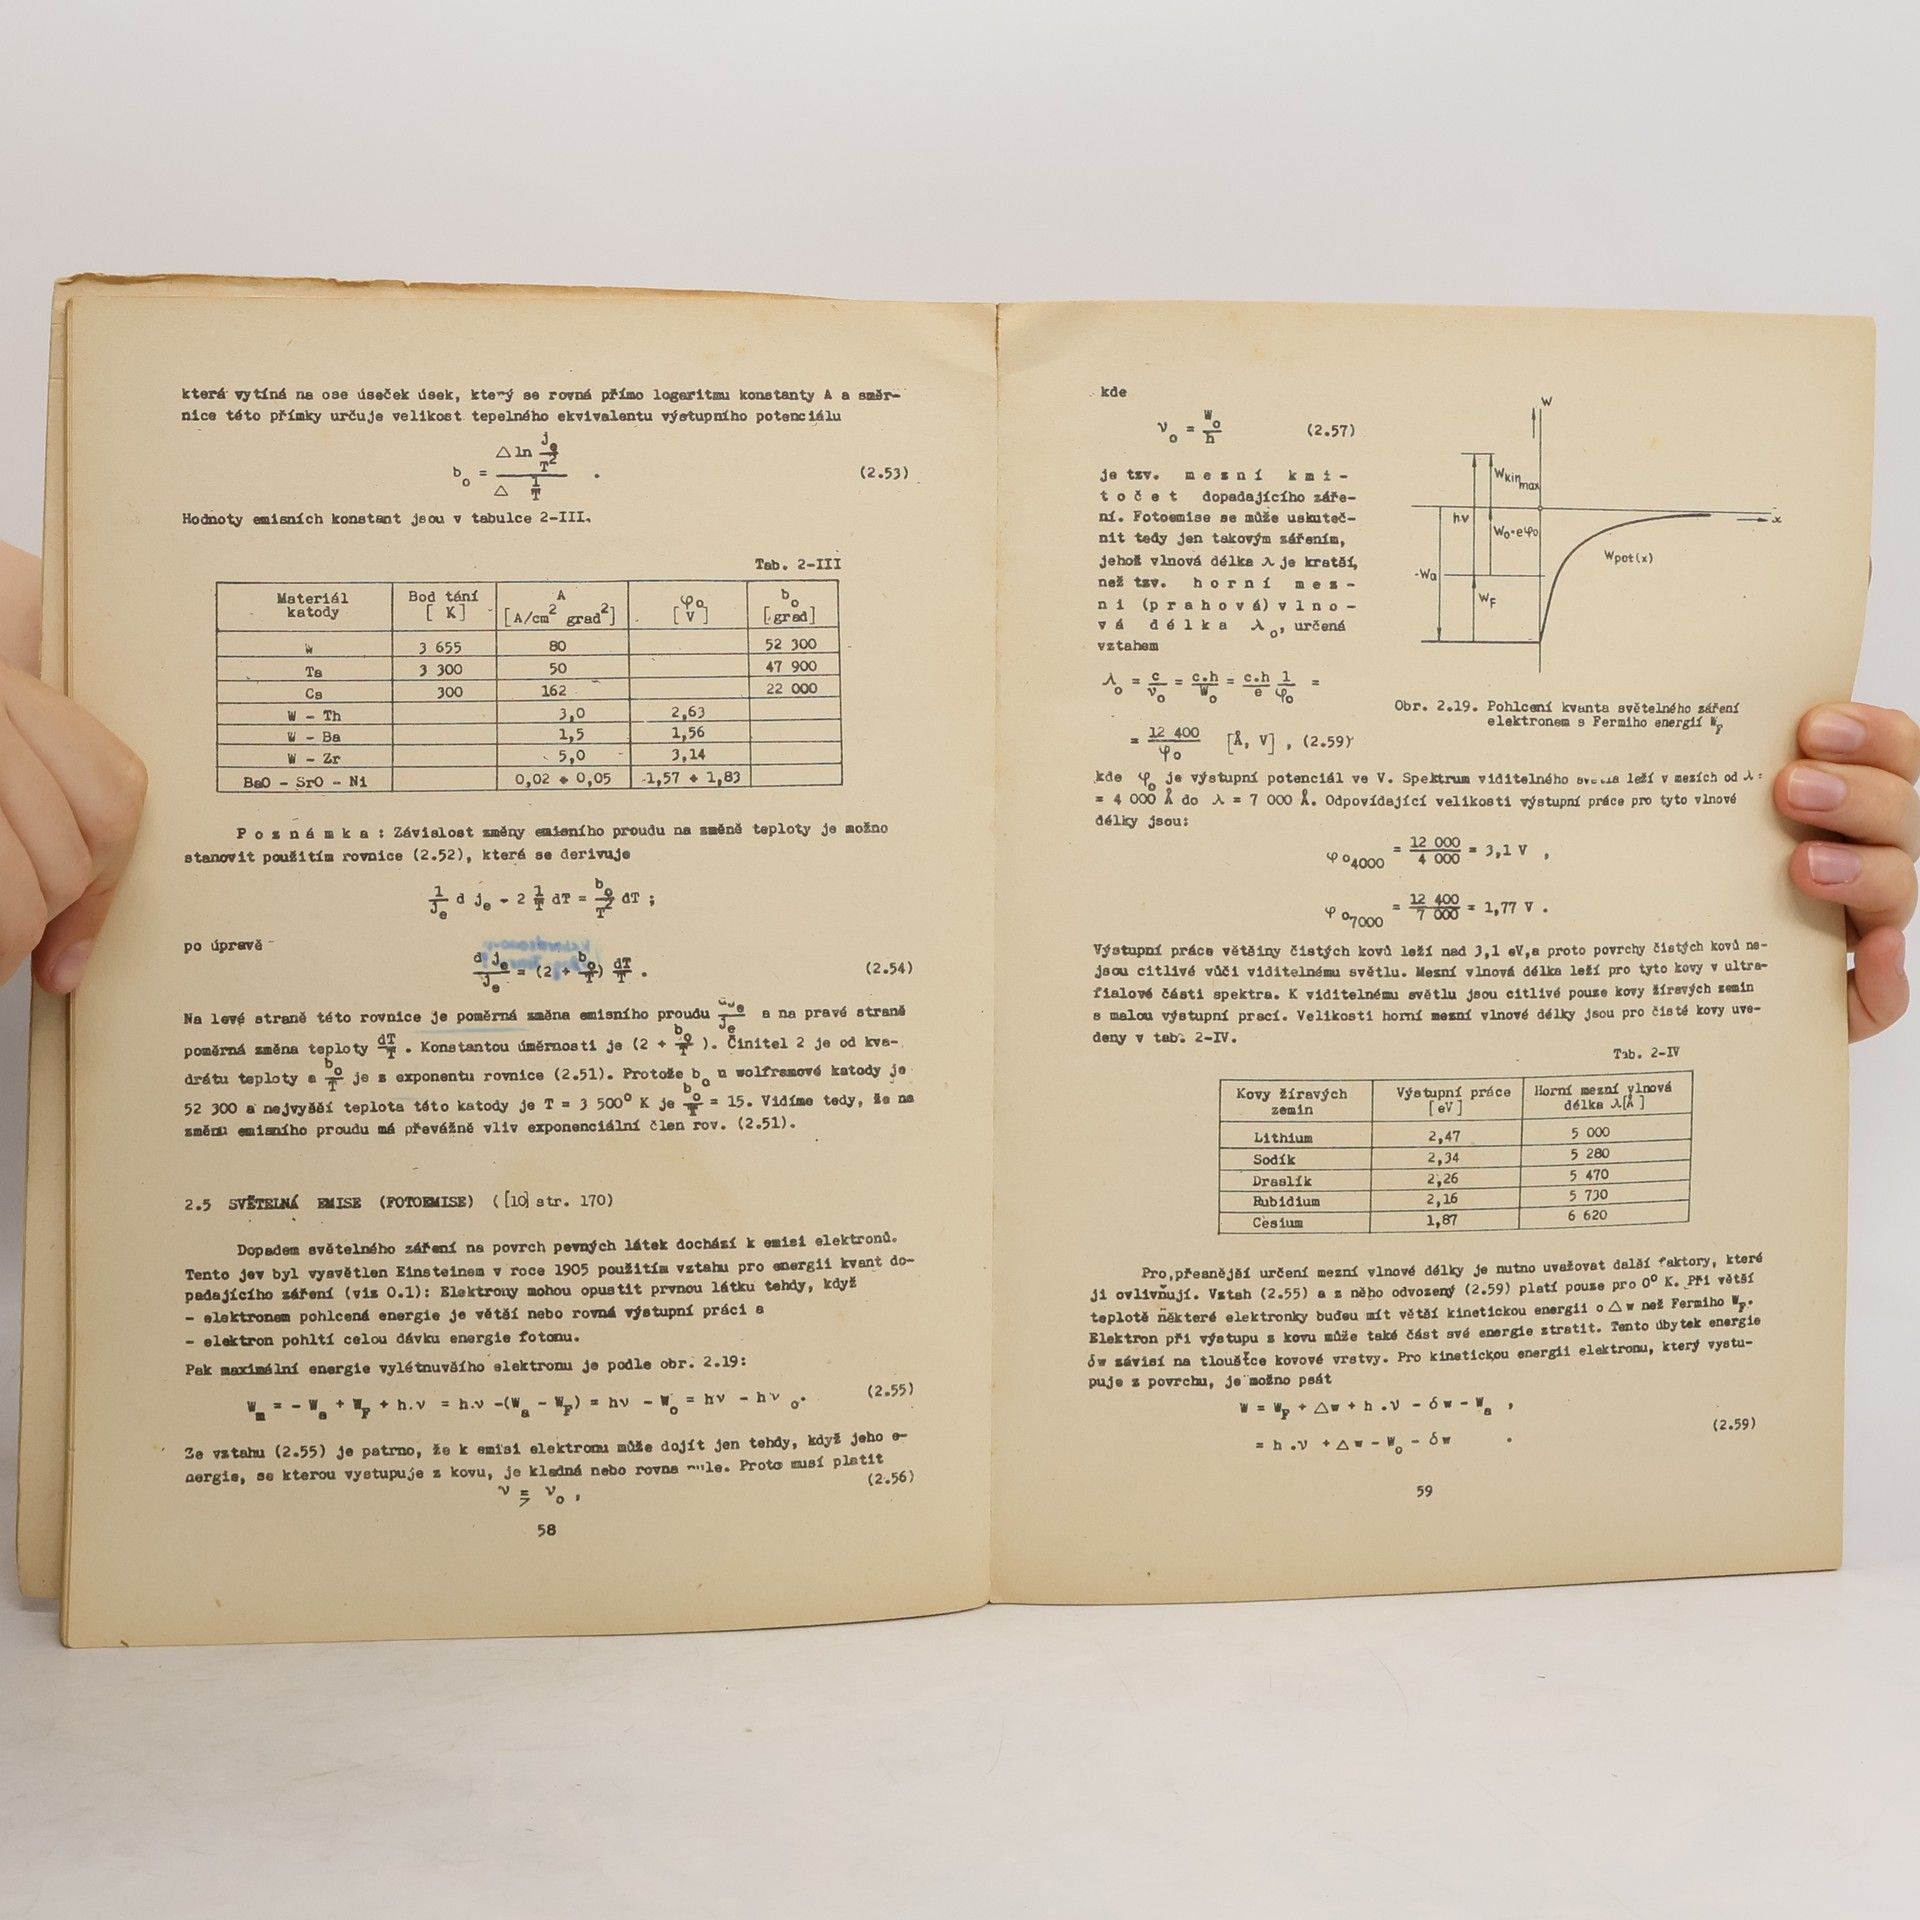 která vytíná na ose úseček úsek, který se rovná přímo logaritmu konstanty A a směr-
nice této přímky určuje velikost tepelného ekvivalentu výstupního potenciálu
b₀ = (Δ ln jₑ/T²) / (Δ 1/T) . (2.53)
Hodnoty emisních konstant jsou v tabulce 2-III.
Tab. 2-III
Materiál katody | Bod tání [ K] | A [A/cm² grad²] | φ₀ [V] | b₀ [grad]
W | 3 655 | 80 | | 52 300
Ta | 3 300 | 50 | | 47 900
Cs | 300 | 162 | | 22 000
W - Th | | 3,0 | 2,63 |
W - Ba | | 1,5 | 1,56 |
W - Zr | | 5,0 | 3,14 |
BaO - SrO - Ni | | 0,02 ÷ 0,05 | 1,57 ÷ 1,83 |
P o z n á m k a : Závislost změny emisního proudu na změně teploty je možno
stanovit použitím rovnice (2.52), která se derivuje
1/jₑ d jₑ - 2 1/T dT = b₀/T² dT ;
po úpravě
d jₑ/jₑ = (2 + b₀/T) dT/T . (2.54)
Na levé straně této rovnice je poměrná změna emisního proudu djₑ/jₑ a na pravé straně
poměrná změna teploty dT/T . Konstantou úměrnosti je (2 + b₀/T ). Činitel 2 je od kva-
drátu teploty a b₀/T je z exponentu rovnice (2.51). Protože b₀ u wolframové katody je
52 300 a nejvyšší teplota této katody je T = 3 500° K je b₀/T = 15. Vidíme tedy, že na
změnu emisního proudu má převážně vliv exponenciální člen rov. (2.51).
2.5 SVĚTELNÁ EMISE (FOTOEMISE) ([10] str. 170)
Dopadem světelného záření na povrch pevných látek dochází k emisi elektronů.
Tento jev byl vysvětlen Einsteinem v roce 1905 použitím vztahu pro energii kvant do-
padajícího záření (viz 0.1): Elektrony mohou opustit prvnou látku tehdy, když
- elektronem pohlcená energie je větší nebo rovná výstupní práci a
- elektron pohltí celou dávku energie fotonu.
Pak maximální energie vylétnuvšího elektronu je podle obr. 2.19:
Wₘ = - Wₐ + W_F + h.ν = h.ν -(Wₐ - W_F) = hν - W₀ = hν - hν ₀. (2.55)
Ze vztahu (2.55) je patrno, že k emisi elektronu může dojít jen tehdy, když jeho e-
nergie, se kterou vystupuje z kovu, je kladná nebo rovna nule. Proto musí platit
ν ≧ ν₀ , (2.56)
58
kde
ν₀ = W₀/h (2.57)
je tzv. m e z n í k m i -
t o č e t dopadajícího záře-
ní. Fotoemise se může uskuteč-
nit tedy jen takovým zářením,
jehož vlnová délka λ je kratší,
než tzv. h o r n í m e z -
n í (p r a h o v á) v l n o -
v á d é l k a λ₀, určená
vztahem
λ₀ = c/ν₀ = c.h/W₀ = c.h/e 1/φ₀ =
= 12 400/φ₀ [Å, V] , (2.59)
W
Wkin max
hν
W₀=eφ₀
x
Wpot(x)
-Wa
WF
Obr. 2.19. Pohlcení kvanta světelného záření
elektronem s Fermiho energií W_F
kde φ₀ je výstupní potenciál ve V. Spektrum viditelného světla leží v mezích od λ =
= 4 000 Å do λ = 7 000 Å. Odpovídající velikosti výstupní práce pro tyto vlnové
délky jsou:
φ₀₄₀₀₀ = 12 000/4 000 = 3,1 V ,
φ₀₇₀₀₀ = 12 400/7 000 = 1,77 V .
Výstupní práce většiny čistých kovů leží nad 3,1 eV,a proto povrchy čistých kovů ne-
jsou citlivé vůči viditelnému světlu. Mezní vlnová délka leží pro tyto kovy v ultra-
fialové části spektra. K viditelnému světlu jsou citlivé pouze kovy žíravých zemin
s malou výstupní prací. Velikosti horní mezní vlnové délky jsou pro čisté kovy uve-
deny v tab. 2-IV.
Tab. 2-IV
Kovy žíravých zemin | Výstupní práce [eV] | Horní mezní vlnová délka λ[Å ]
Lithium | 2,47 | 5 000
Sodík | 2,34 | 5 280
Draslík | 2,26 | 5 470
Rubidium | 2,16 | 5 730
Cesium | 1,87 | 6 620
Pro přesnější určení mezní vlnové délky je nutno uvažovat další faktory, které
ji ovlivňují. Vztah (2.55) a z něho odvozený (2.59) platí pouze pro 0° K. Při větší
teplotě některé elektronky budou mít větší kinetickou energii o Δw než Fermiho W_F.
Elektron při výstupu z kovu může také část své energie ztratit. Tento úbytek energie
δw závisí na tloušťce kovové vrstvy. Pro kinetickou energii elektronu, který vystu-
puje z povrchu, je možno psát
W = W_F + Δw + h .ν - δw - Wₐ ,
(2.59)
= h .ν + Δw - W₀ - δw .
59